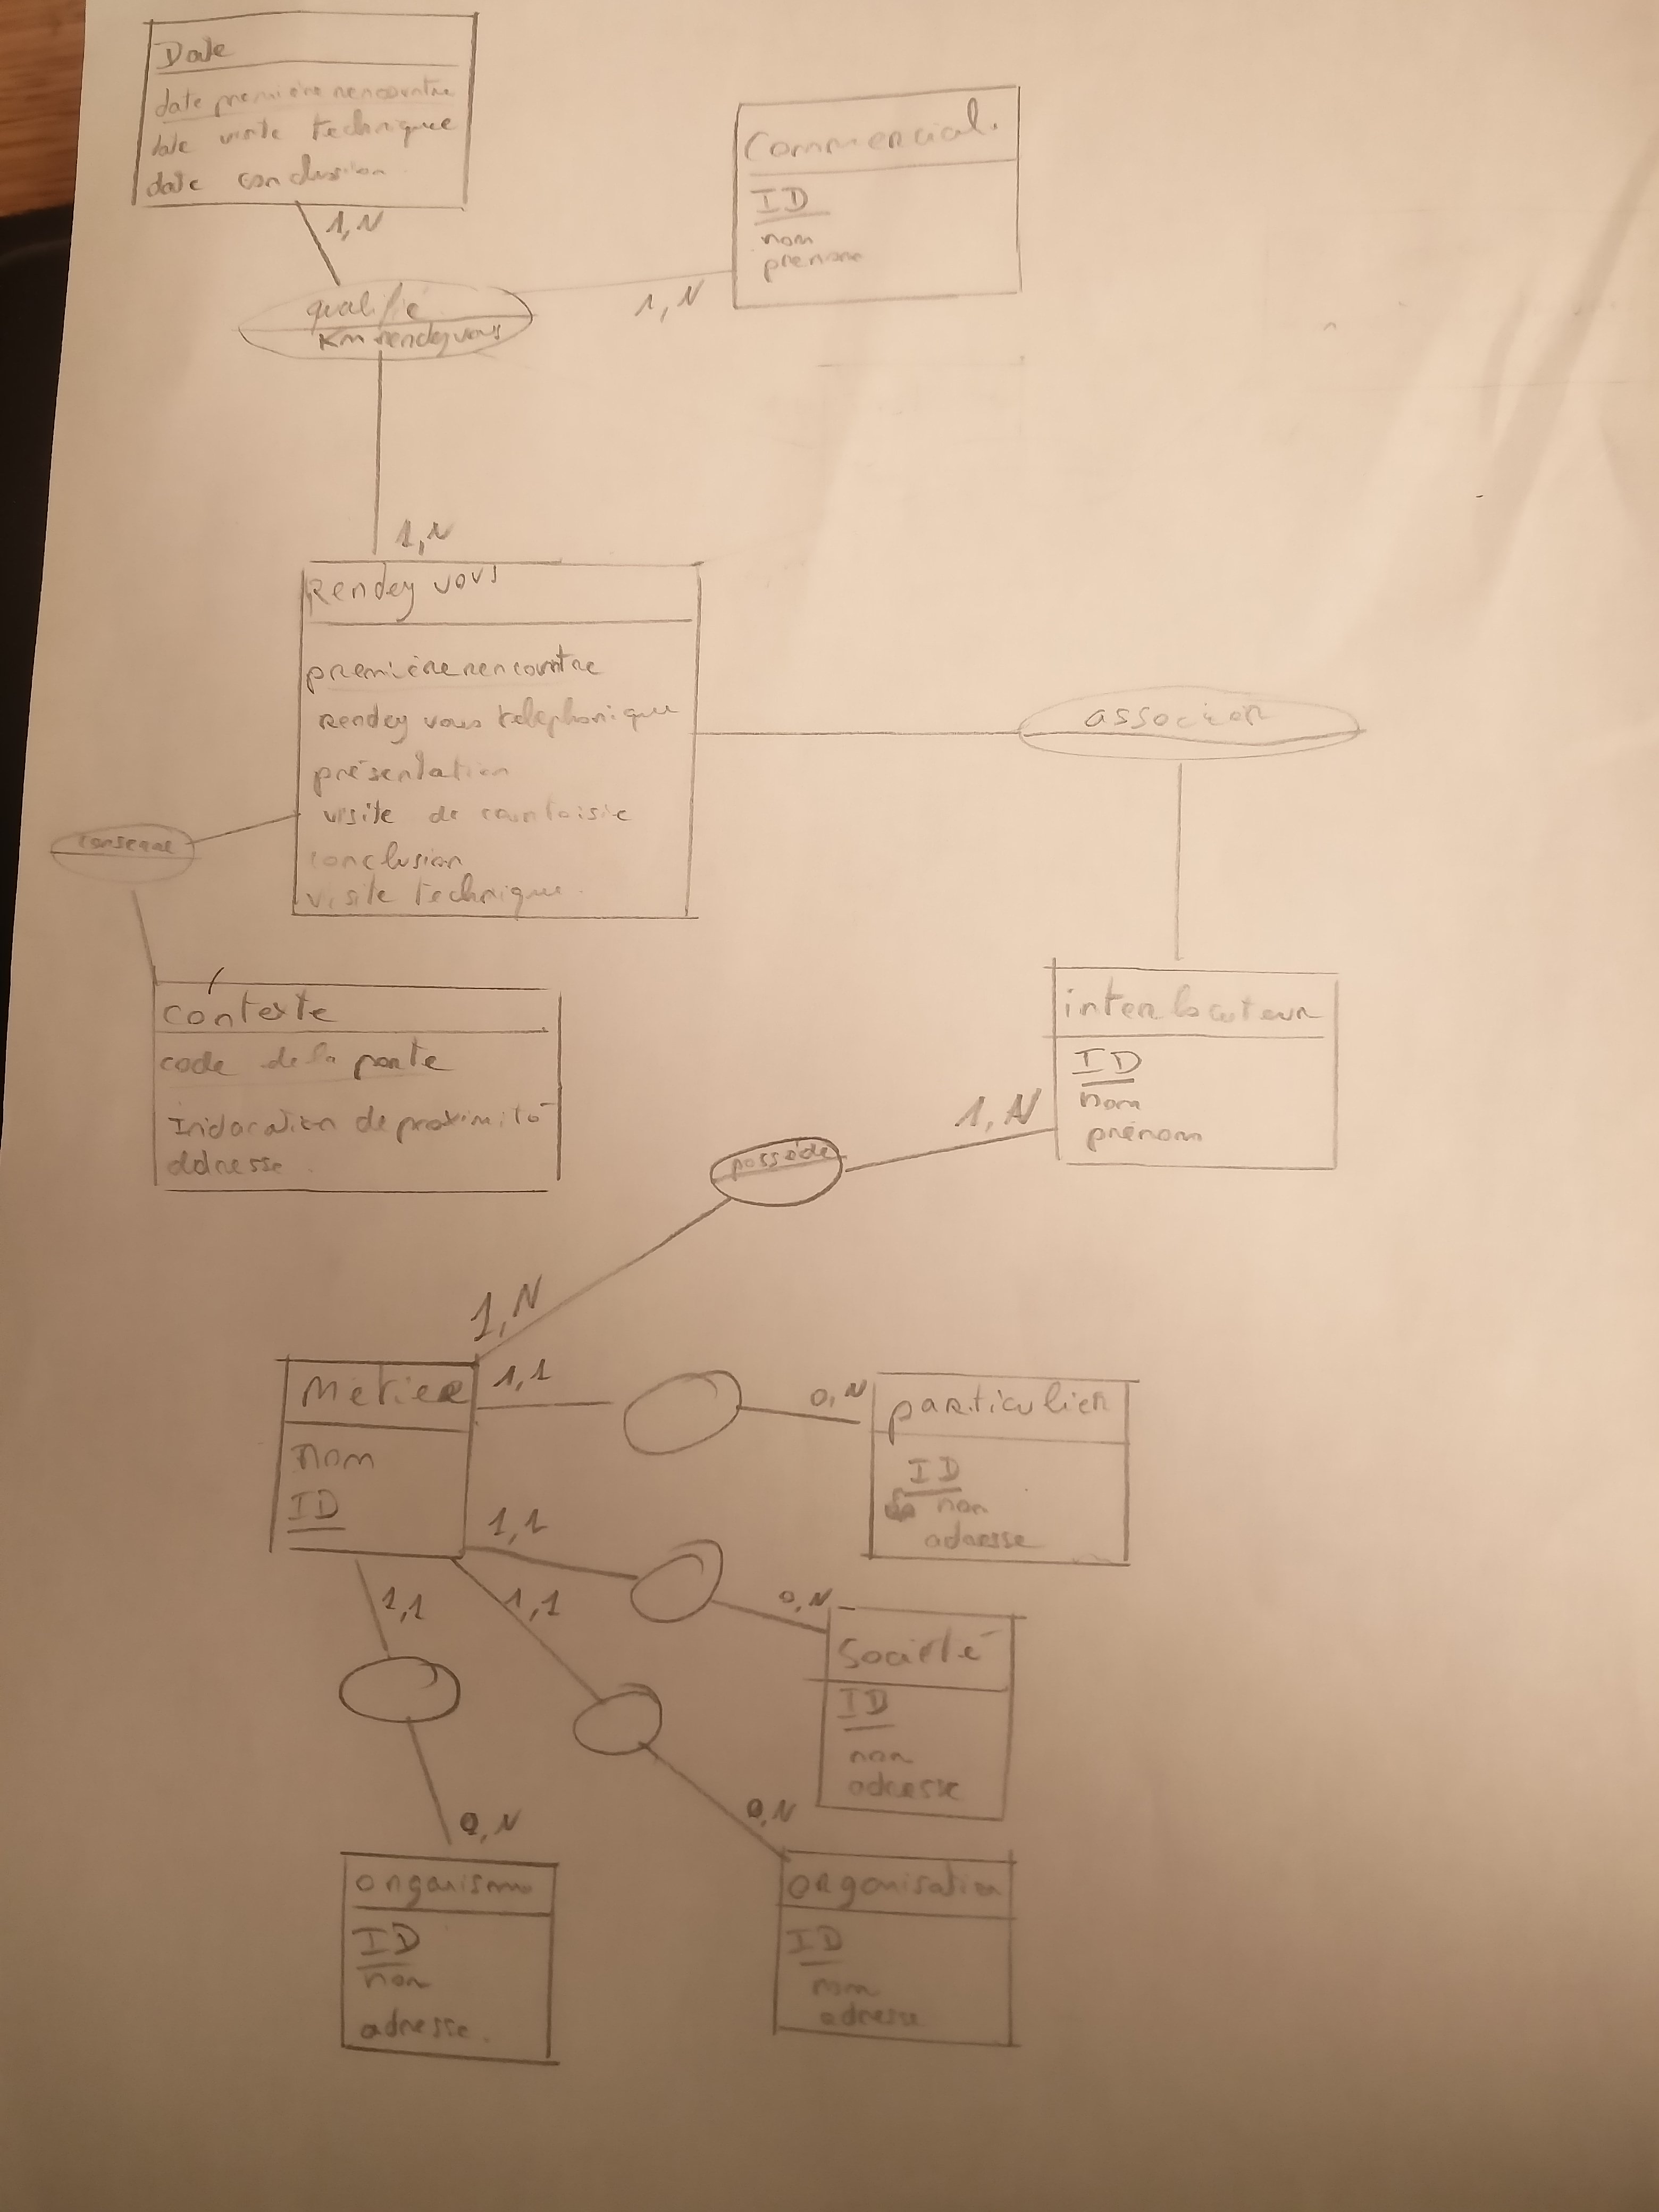 Date
date première rencountre
date visite technique
date conclusion
1,N
Commercial.
ID
nom
prenom
1,N
qualifie
Km rendez vous
1,N
Rendez vous
première rencountre
Rendez vous telephonique
présentation
visite de courtoisie
conclusion
visite technique.
associer
conserne
contexte
code de la porte
adresse.
interlocuteur
ID
nom
prénom
1,N
possède
1,N
Metier
nom
ID
1,1
0,N
particulier
ID
nom
adresse
1,1
0,N
Société
ID
nom
adresse
1,1
1,1
0,N
0,N
organisme
ID
nom
adresse.
organisation
ID
nom
adresse